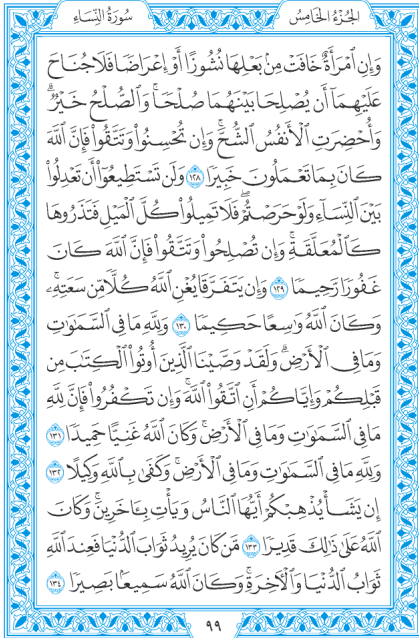 الجُزْءُ الخَامِسُ سُورَةُ النِّسَاءِ
وَإِنِ ٱمْرَأَةٌ خَافَتْ مِنۢ بَعْلِهَا نُشُوزًا أَوْ إِعْرَاضًا فَلَا جُنَاحَ
عَلَيْهِمَآ أَن يُصْلِحَا بَيْنَهُمَا صُلْحًاۚ وَٱلصُّلْحُ خَيْرٌۗ
وَأُحْضِرَتِ ٱلْأَنفُسُ ٱلشُّحَّۚ وَإِن تُحْسِنُوا۟ وَتَتَّقُوا۟ فَإِنَّ ٱللَّهَ
كَانَ بِمَا تَعْمَلُونَ خَبِيرًا ١٢٨ وَلَن تَسْتَطِيعُوٓا۟ أَن تَعْدِلُوا۟
بَيْنَ ٱلنِّسَآءِ وَلَوْ حَرَصْتُمْۖ فَلَا تَمِيلُوا۟ كُلَّ ٱلْمَيْلِ فَتَذَرُوهَا
كَٱلْمُعَلَّقَةِۚ وَإِن تُصْلِحُوا۟ وَتَتَّقُوا۟ فَإِنَّ ٱللَّهَ كَانَ
غَفُورًا رَّحِيمًا ١٢٩ وَإِن يَتَفَرَّقَا يُغْنِ ٱللَّهُ كُلًّا مِّن سَعَتِهِۦۚ
وَكَانَ ٱللَّهُ وَٰسِعًا حَكِيمًا ١٣٠ وَلِلَّهِ مَا فِى ٱلسَّمَٰوَٰتِ
وَمَا فِى ٱلْأَرْضِۗ وَلَقَدْ وَصَّيْنَا ٱلَّذِينَ أُوتُوا۟ ٱلْكِتَٰبَ مِن
قَبْلِكُمْ وَإِيَّاكُمْ أَنِ ٱتَّقُوا۟ ٱللَّهَۚ وَإِن تَكْفُرُوا۟ فَإِنَّ لِلَّهِ
مَا فِى ٱلسَّمَٰوَٰتِ وَمَا فِى ٱلْأَرْضِۚ وَكَانَ ٱللَّهُ غَنِيًّا حَمِيدًا ١٣١
وَلِلَّهِ مَا فِى ٱلسَّمَٰوَٰتِ وَمَا فِى ٱلْأَرْضِۚ وَكَفَىٰ بِٱللَّهِ وَكِيلًا ١٣٢
إِن يَشَأْ يُذْهِبْكُمْ أَيُّهَا ٱلنَّاسُ وَيَأْتِ بِـَٔاخَرِينَۚ وَكَانَ
ٱللَّهُ عَلَىٰ ذَٰلِكَ قَدِيرًا ١٣٣ مَّن كَانَ يُرِيدُ ثَوَابَ ٱلدُّنْيَا فَعِندَ ٱللَّهِ
ثَوَابُ ٱلدُّنْيَا وَٱلْـَٔاخِرَةِۚ وَكَانَ ٱللَّهُ سَمِيعًۢا بَصِيرًا ١٣٤
٩٩